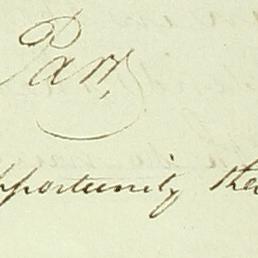 Parr,
pportunity the